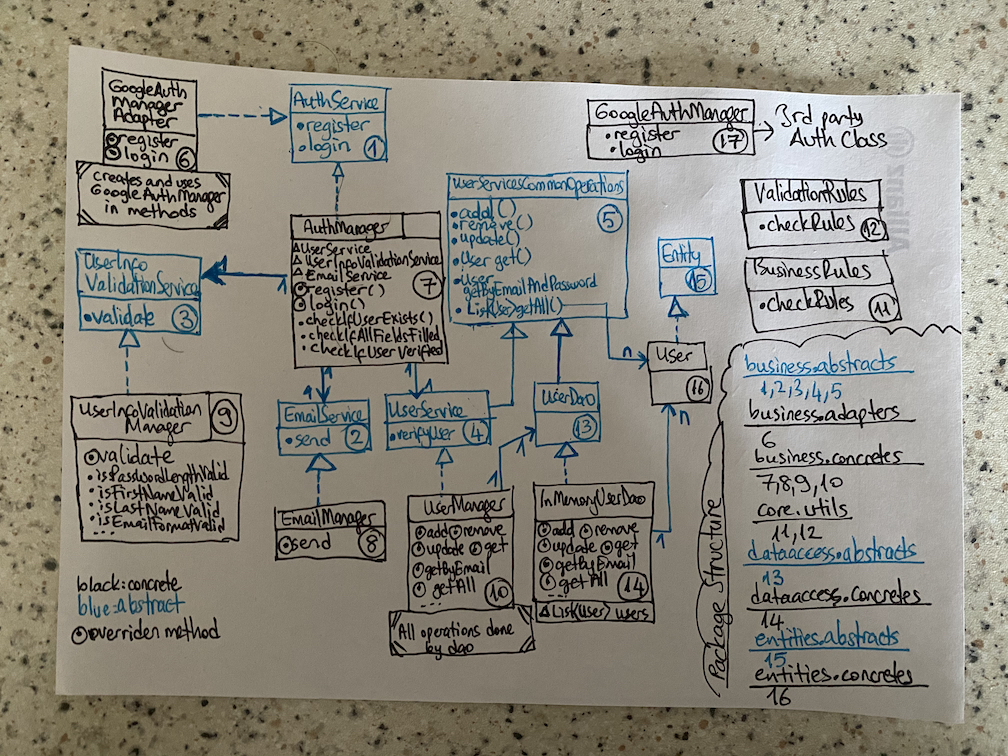 GoogleAuth
Manager
Adapter
register
login 6
creates and uses
GoogleAuthManager
in methods
AuthService
•register
•login 1
GoogleAuthManager
•register
•login 17
3rd party
Auth Class
UserServicesCommonOperations
•add()
•remove()
•update()
•User get()
•User
getByEmailAndPassword
•List<User>getAll()
5
ValidationRules
•checkRules 12
BusinessRules
•checkRules 11
Entity
15
AuthManager
UserService
UserInfoValidationService
EmailService
register()
login()
•checkIfUserExists()
•checkIfAllFieldsFilled
•checkIfUserVerified
7
UserInfo
ValidationService
•validate 3
1
1
1
n
User
16
UserInfoValidation
Manager
9
validate
•isPasswordLengthValid
•isFirstNameValid
•isLastNameValid
•isEmailFormatValid
...
EmailService
•send 2
UserService
•verifyUser 4
UserDao
13
n
1
EmailManager
send 8
UserManager
add remove
update get
getByEmail
getAll
...
10
All operations done
by dao
InMemoryUserDao
add remove
update get
getByEmail
getAll
...
14
List<User> users
black:concrete
blue:abstract
overriden method
Package Structure
business.abstracts
1,2,3,4,5
business.adapters
6
business.concretes
7,8,9,10
core.utils
11,12
dataaccess.abstracts
13
dataaccess.concretes
14
entities.abstracts
15
entities.concretes
16